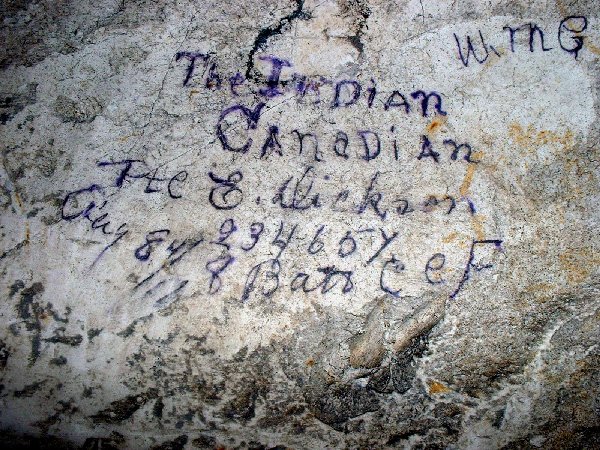 W. M G
The Indian
Canadian
Pte E. Dickson
Aug 8 234654
8 Batt C E F